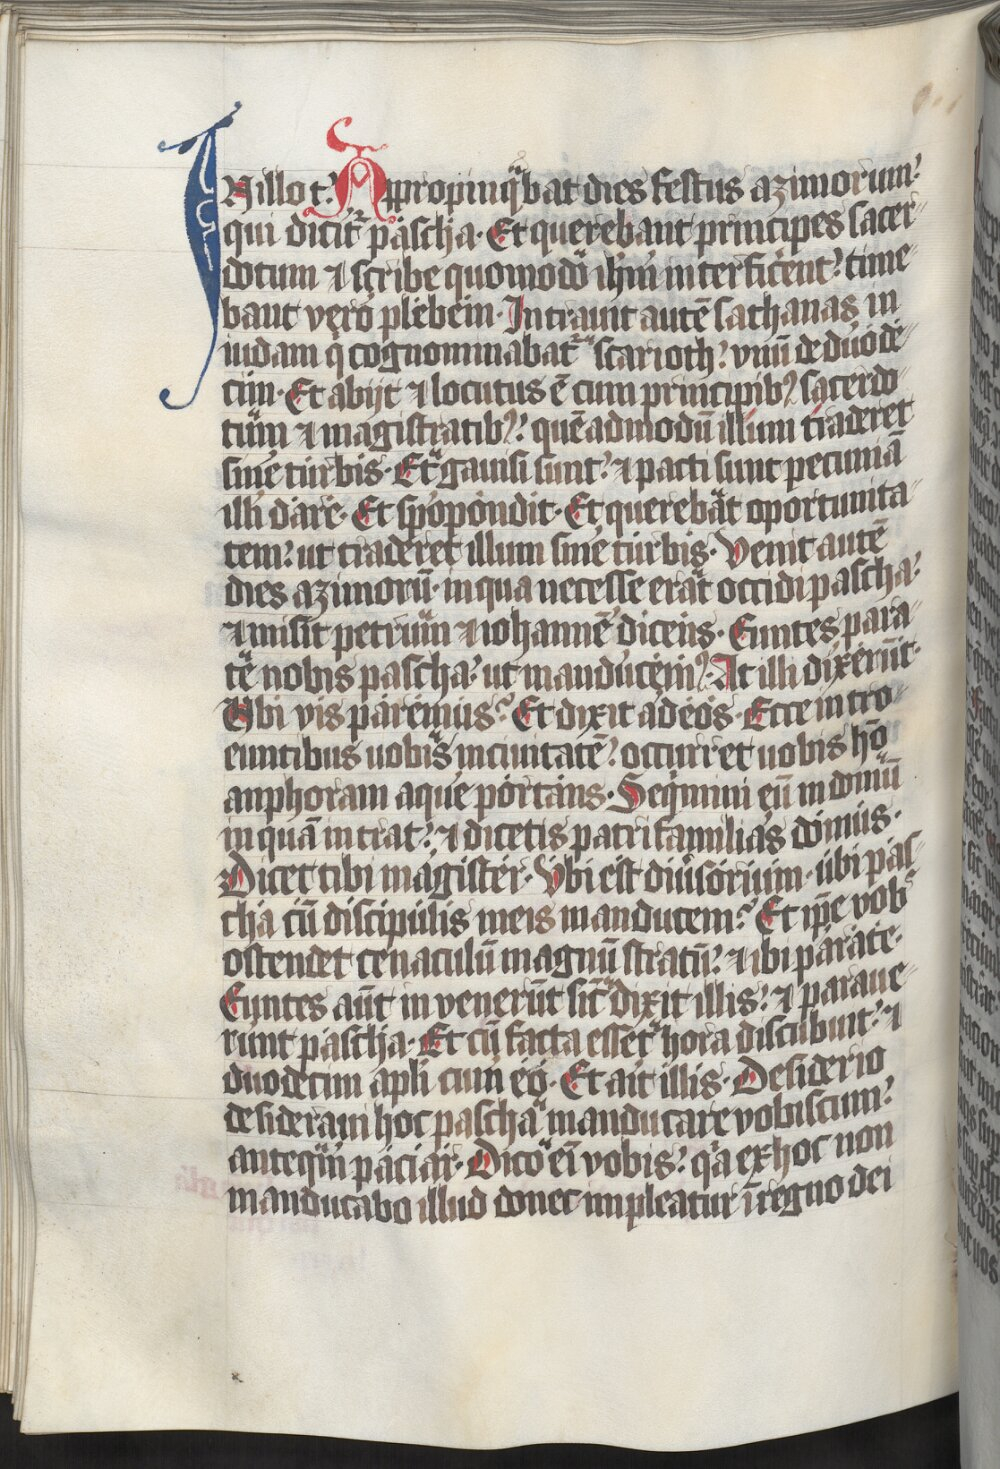 IN illo t. Appropinq̈bat dies festus azimorum:
qui dicit᷑ pascha. Et querebant principes sacer-
dotum ⁊ scribe quomodo ihm̄ interficerent: time-
bant vero plebem. Intrauit autē sathanas in
iudam q̇ cognominabat᷑ scarioth: vnū de duode-
cim. Et abijt ⁊ locutus ē cum principib⁊ sacerdo-
tum ⁊ magistratib⁊: quēadmodū illum traderet
sine turbis. Et gauisi sunt: ⁊ pacti sunt pecuniā
illi dare. Et spopondit. Et querebat oportunita-
tem: ut traderet illum sine turbis. Venit autē
dies azimorū. in qua necesse erat occidi pascha:
⁊ misit petrum ⁊ iohannē dicens. Euntes para-
te nobis pascha: ut manducem⁊. At illi dixerūt.
Ubi vis paremus? Et dixit ad eos. Ecce intro-
euntibus uobis in ciuitatē: occurret uobis hō
anphoram aque portans. Seqmini eū in domū
in quā intrat: ⁊ dicetis patri familias domus.
Dicet tibi magister. Vbi est diuisorium. ubi pas-
cha cū discipulis meis manducem? Et ip̄e vob᷒
ostendet cenaculū magnū stratū: ⁊ ibi parate.
Euntes aūt inuenerūt sic̄ dixit illis: ⁊ paraue-
runt pascha. Et cū facta esset hora discubuit: ⁊
duodecim apli cum eo. Et ait illis. Desiderio
desideraui hoc pascha manducare vobiscum:
anteq̈m paciar. Dico ei̅ vobis: q̇a ex hoc non
manducabo illud donec impleatur ī regno dei